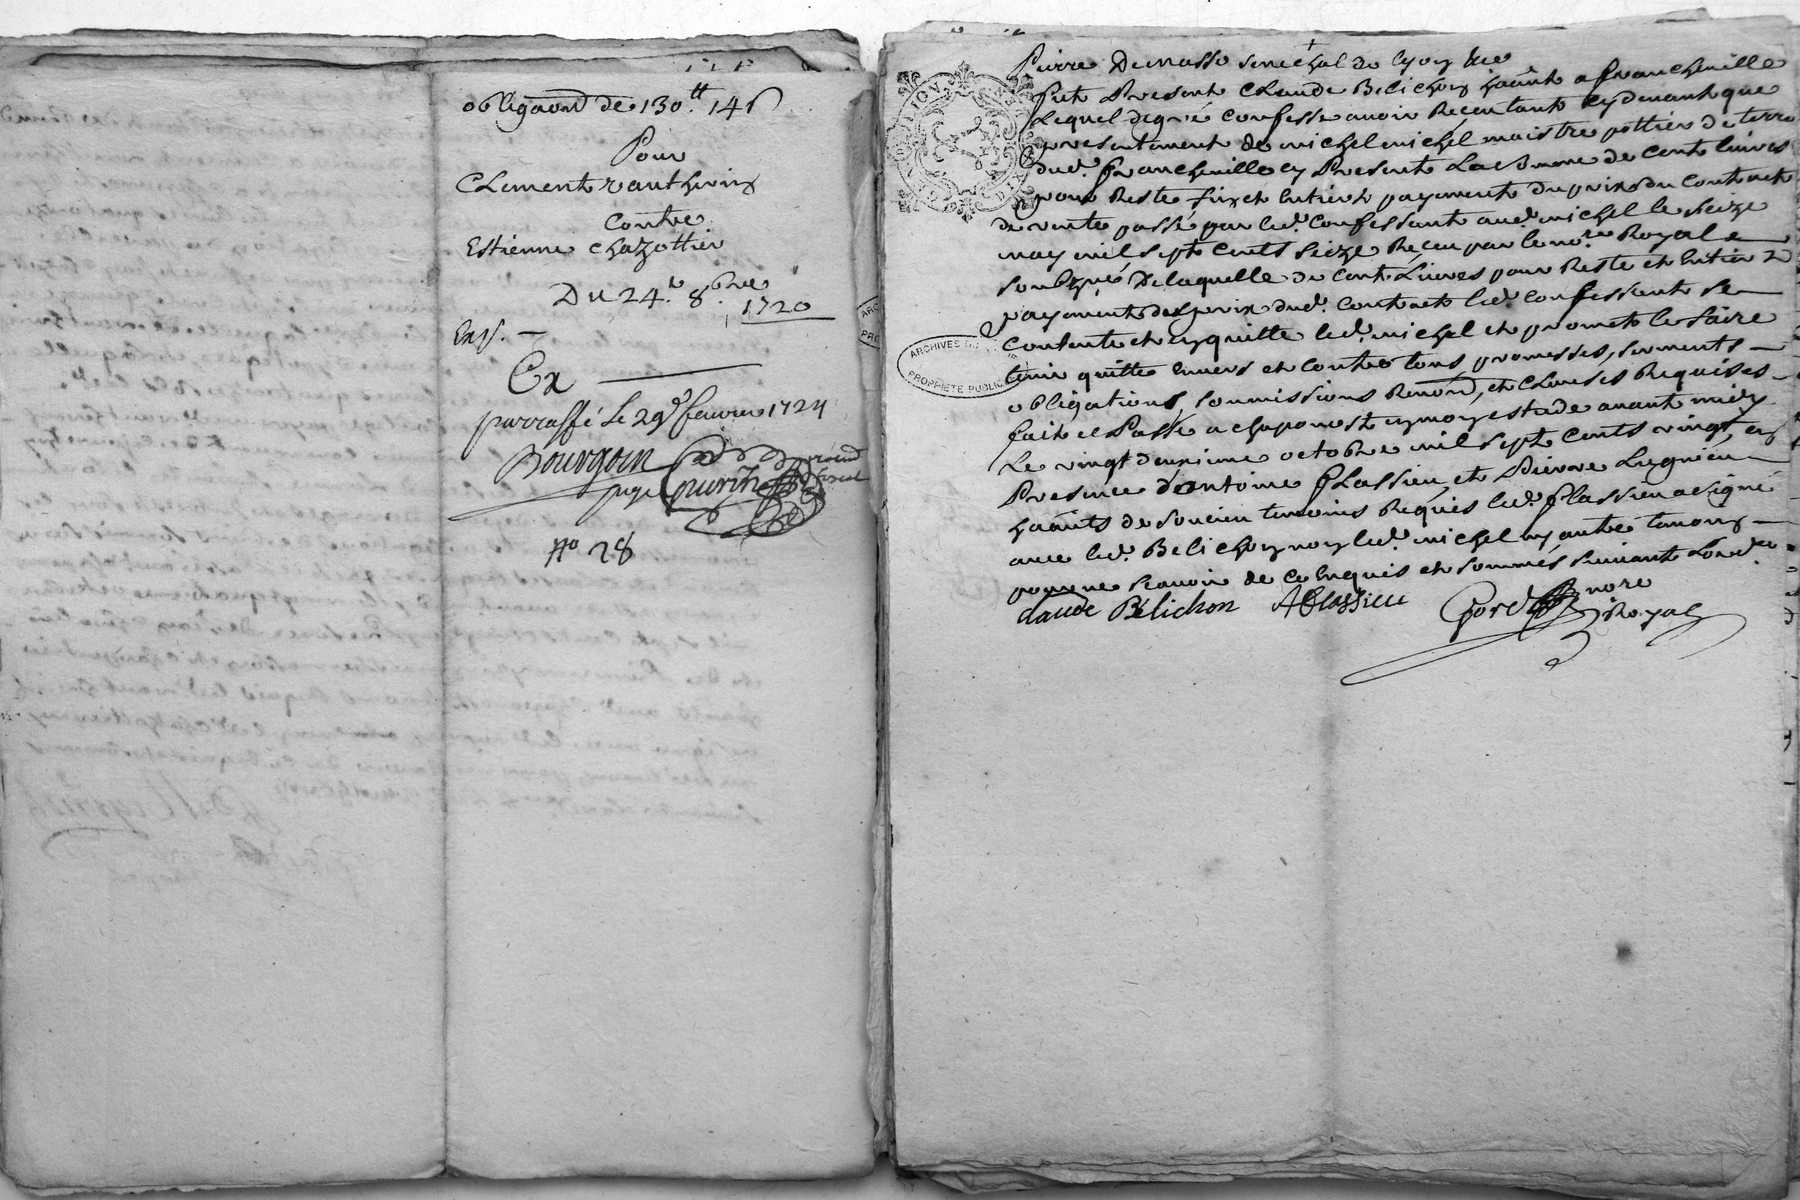 obligaond de 130.tt 14 s
Pour
Clement ranthoin
Contre
Estienne chazottier
Du 24.e 8.bre
1720
Ens. —
Ex
parraffé le 29e feuvrier 1724
Bourgoin
juge
No 28
Pierre Demasso senechal de lyon &ce
fut Present Claude Belichon haant a francheuille
Lequel degré confesse auoir Receu tant cydeuant que
presentement de michel michel maistre pottier de terre
dud. francheuille cy Present La somme de cent liures
pour Reste fin et entier payement du prix du contract
de vente passé par led. confessant aud. michel le seize
may mil sept cents seize Receu par le nore. Royal
soubzné De laquelle de cent Liures pour Reste et entier
payement du prix dud. contract led. confessant se
contente et en quitte led. michel et promet le faire
tenir quitte enuers et contre tous promesses, serments
obligations, soumissions Renond, et clauses Requises
fait et Passé a chaponost en mon estude auant midy
Le vingt deuxieme octobre mil sept cents vingt, en
Presence d'antoine flassieu, et Pierre Lugnieu
haants de soucieu temoins Requis led. flassieu a signé
auec led. Belichon non led. michel ny autre temoin
pour ne scauoir de ce Enquis et sommés suiuant Lord.ce
Claude Belichon AFlassieu
nore
Royal
ARCHIVES DU
PROPRIETE PUBLIQUE